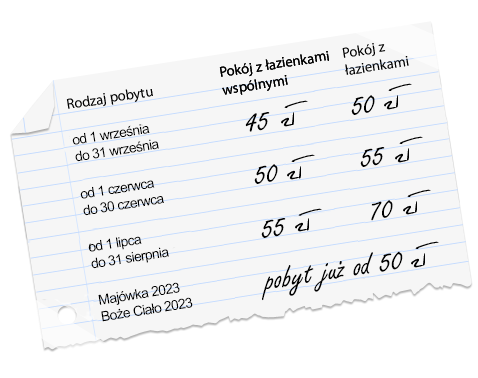 Rodzaj pobytu
Pokój z łazienkami
wspólnymi
Pokój z
łazienkami
od 1 września
do 31 września
45 zł
50 zł
od 1 czerwca
do 30 czerwca
50 zł
55 zł
od 1 lipca
do 31 sierpnia
55 zł
70 zł
Majówka 2023
Boże Ciało 2023
pobyt już od 50 zł